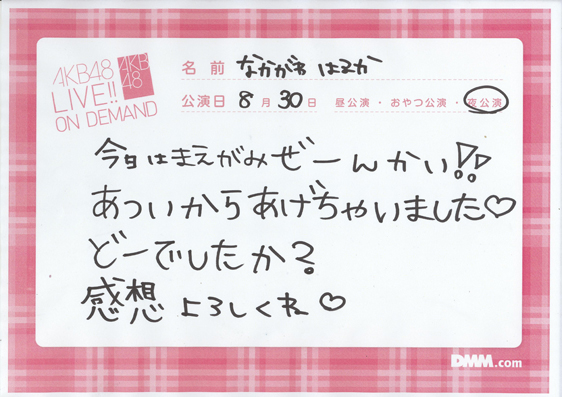 AKB48
LIVE!!
ON DEMAND
AKB
48
名前 なかがわ はるか
公演日 8月30日 昼公演・おやつ公演・夜公演
今日はまえがみぜーんかい!!
あついからあげちゃいました♡
どーでしたか?
感想よろしくね♡
DMM.com